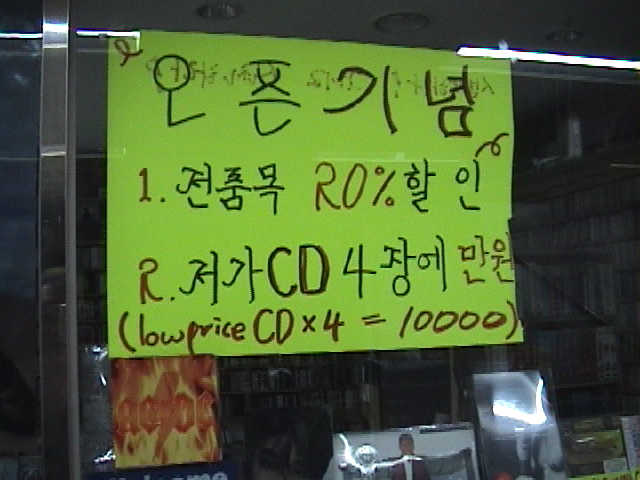 오픈기념
1. 전품목 20% 할인
2. 저가 CD 4장에 만원
(low price CD x 4 = 10000)
AC/DC